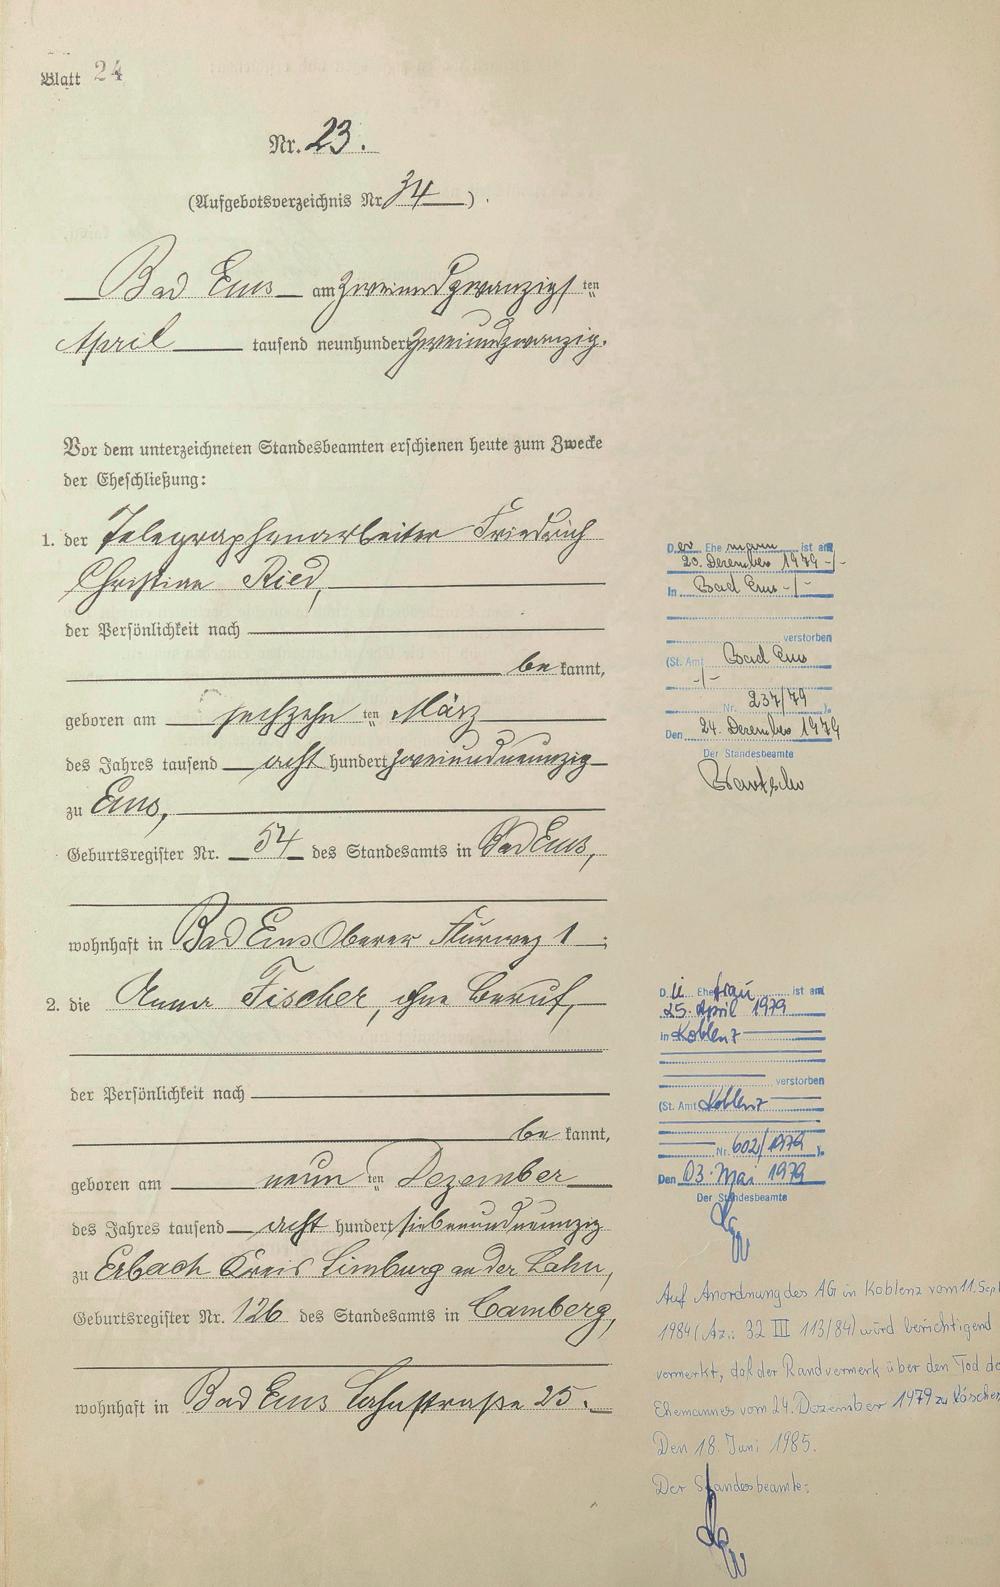 Blatt 24
Nr. 23.
(Aufgebotsverzeichnis Nr. 34).
Bad Ems am zweiundzwanzigsten
April tausend neunhundert zweiundzwanzig.
Vor dem unterzeichneten Standesbeamten erschienen heute zum Zwecke
der Eheschließung:
1. der Telegraphenarbeiter Friedrich
Christian Ried,
der Persönlichkeit nach
bekannt,
geboren am sechzehnten März
des Jahres tausend acht hundert zweiundneunzig
zu Ems,
Geburtsregister Nr. 54 des Standesamts in Bad Ems,
wohnhaft in Bad Ems Oberer Flurweg 1;
2. die Anna Fischer, ohne Beruf,
der Persönlichkeit nach
bekannt,
geboren am neunten Dezember
des Jahres tausend acht hundert siebenundneunzig
zu Erbach Kreis Limburg an der Lahn,
Geburtsregister Nr. 126 des Standesamts in Camberg,
wohnhaft in Bad Ems Lahnstraße 25.
Der Ehemann ist am
20. Dezember 1979 -/-
In Bad Ems -/-
verstorben
(St. Amt Bad Ems
-/-
Nr. 237/79).
Den 24. Dezember 1979
Der Standesbeamte
Die Ehefrau ist am
25. April 1979
in Koblenz
verstorben
(St. Amt Koblenz
Nr. 602/1979).
Den 03. Mai 1979
Der Standesbeamte
Auf Anordnung des AG in Koblenz vom 11. Sept
1984 (Az.: 32 III 113/84) wird berichtigend
vermerkt, daß der Randvermerk über den Tod de
Ehemannes vom 24. Dezember 1979 zu löschen
Den 18. Juni 1985.
Der Standesbeamte: